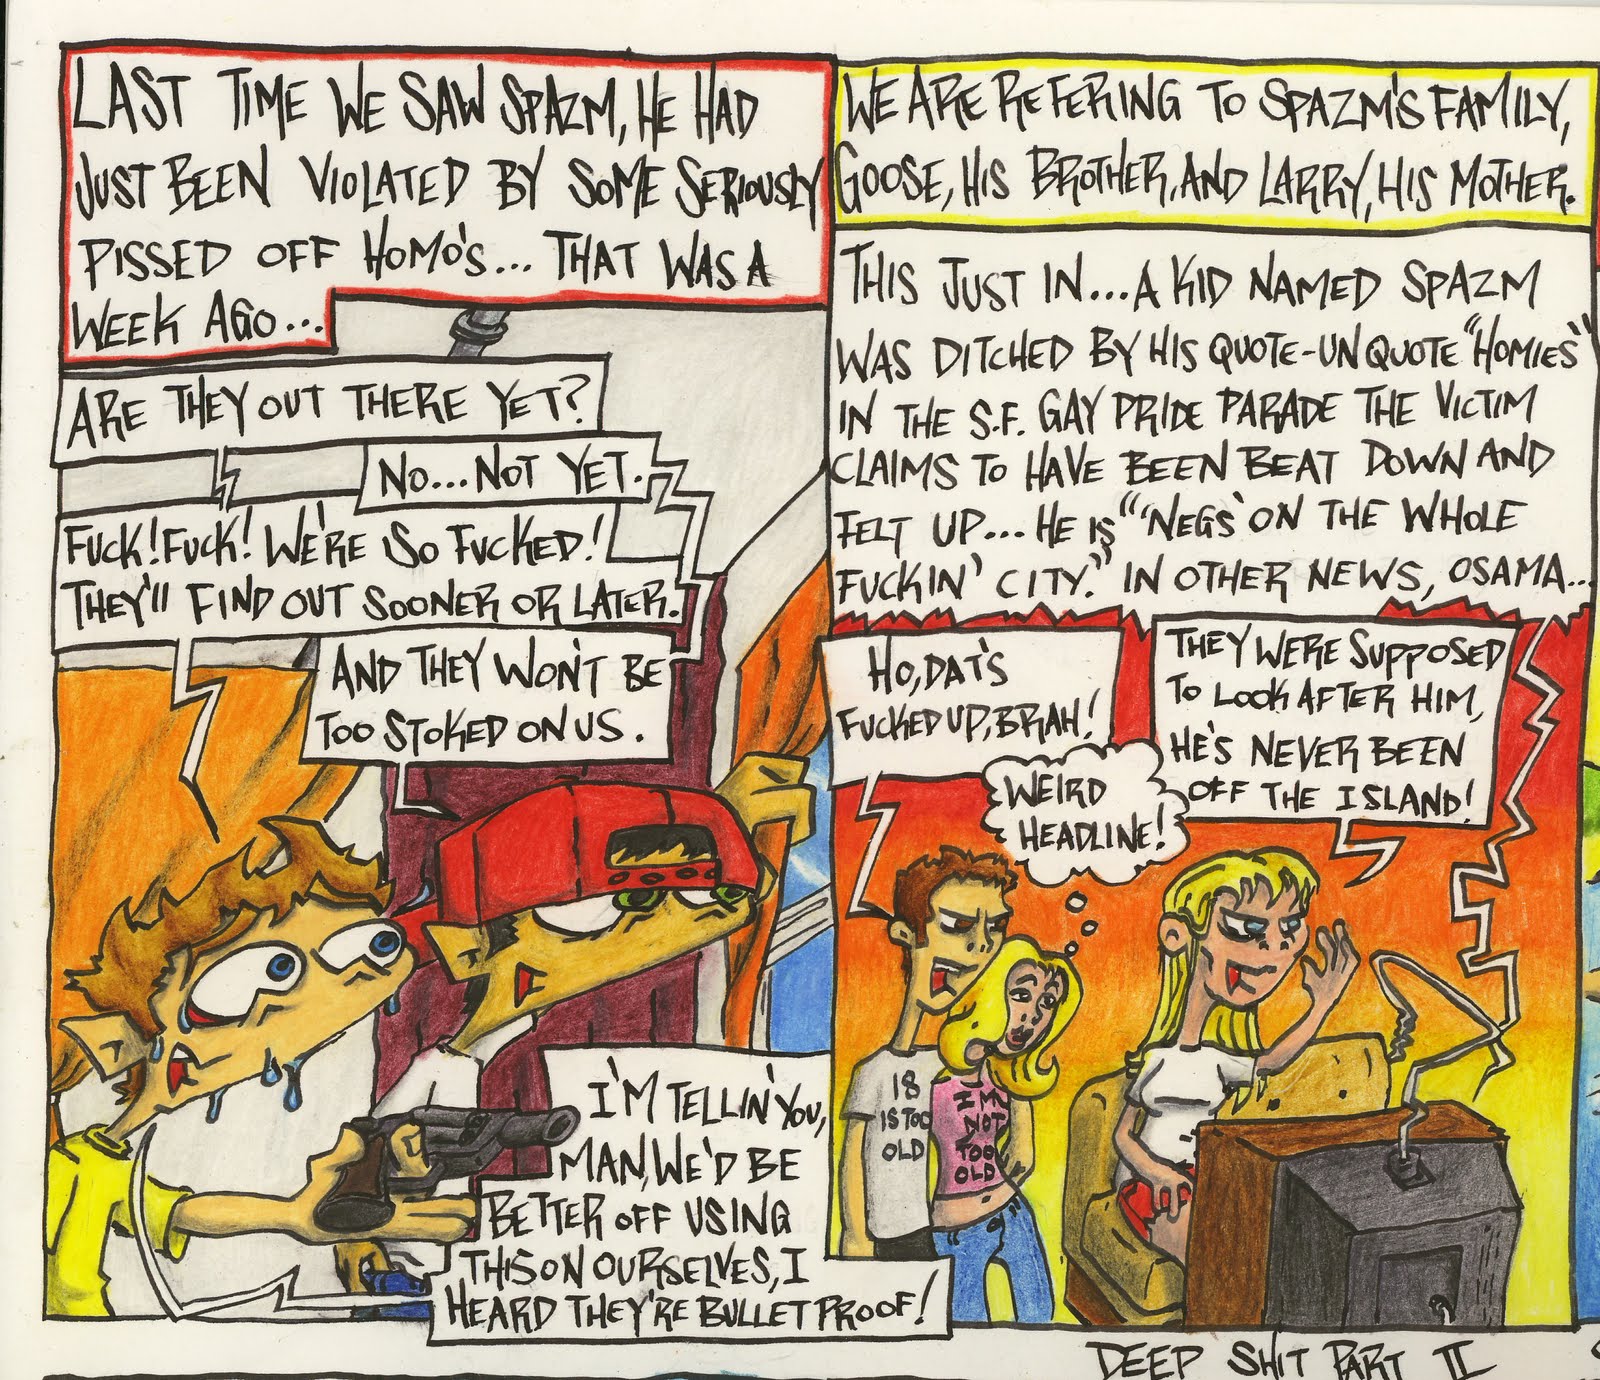 LAST TIME WE SAW SPAZM, HE HAD
JUST BEEN VIOLATED BY SOME SERIOUSLY
PISSED OFF HOMO'S... THAT WAS A
WEEK AGO...
ARE THEY OUT THERE YET?
NO...NOT YET.
FUCK! FUCK! WE'RE SO FUCKED!
THEY'll FIND OUT SOONER OR LATER.
AND THEY WON'T BE
TOO STOKED ON US.
I'M TELLIN' YOU,
MAN, WE'D BE
BETTER OFF USING
THIS ON OURSELVES, I
HEARD THEY'RE BULLET PROOF!
WE ARE REFERING TO SPAZM'S FAMILY,
GOOSE, HIS BROTHER, AND LARRY, HIS MOTHER.
THIS JUST IN...A KID NAMED SPAZM
WAS DITCHED BY HIS QUOTE-UNQUOTE "HOMIES"
IN THE S.F. GAY PRIDE PARADE THE VICTIM
CLAIMS TO HAVE BEEN BEAT DOWN AND
FELT UP... HE IS "'NEGS' ON THE WHOLE
FUCKIN' CITY." IN OTHER NEWS, OSAMA...
HO, DAT'S
FUCKED UP, BRAH!
WEIRD
HEADLINE!
THEY WERE SUPPOSED
TO LOOK AFTER HIM,
HE'S NEVER BEEN
OFF THE ISLAND!
18
IS TOO
OLD
I'M
NOT
TOO
OLD
DEEP SHIT PART II